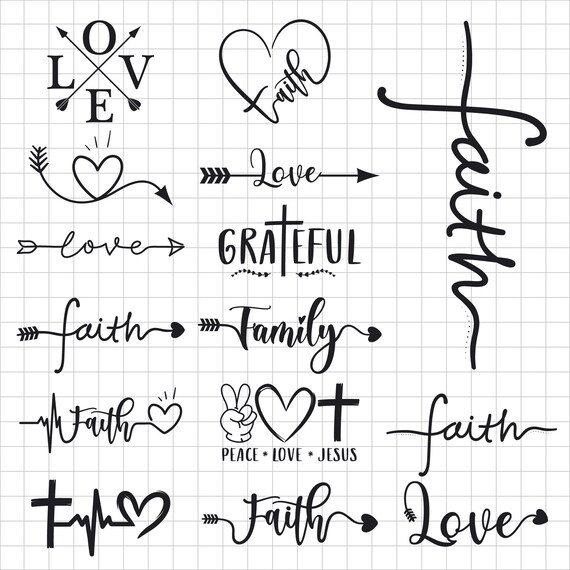 LOVE
faith
Love
love
GRATEFUL
faith
faith
Family
Faith
PEACE * LOVE * JESUS
faith
Faith
Love